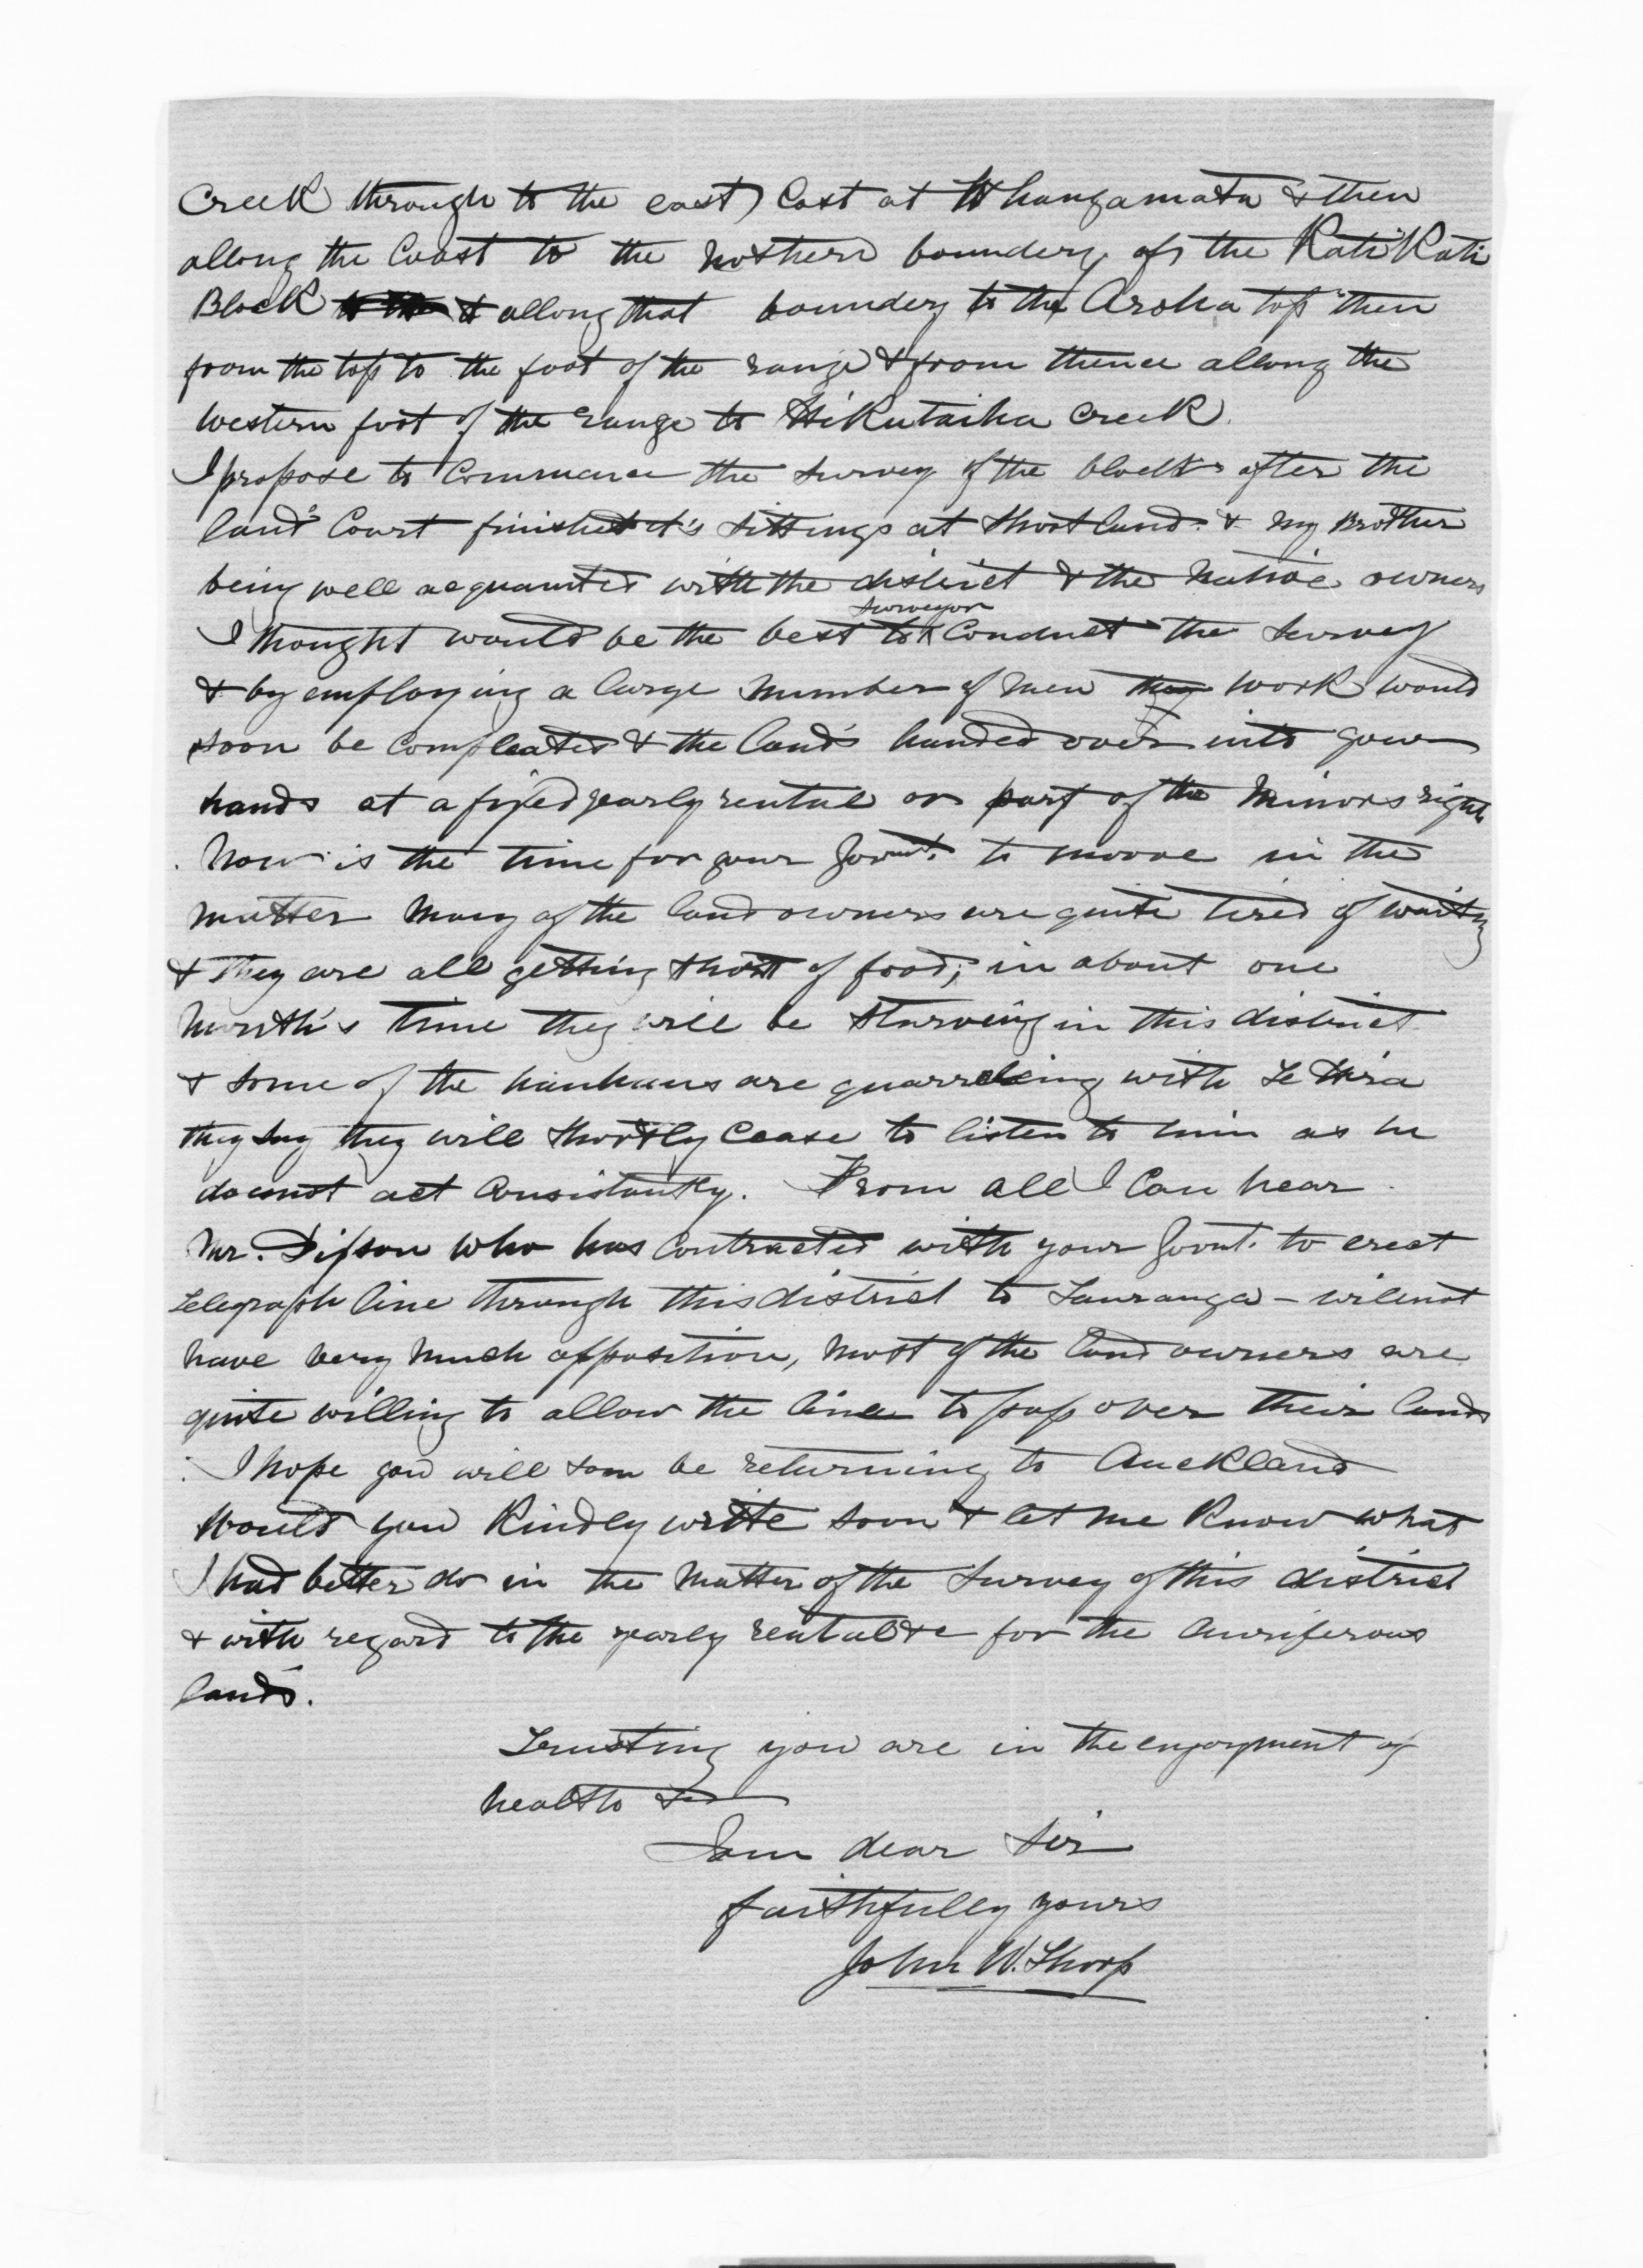 Creek through to the east Cost at Whangamata & then
allong the Coast to the nothern boundery of the KatiKati
Block & allong that boundery to the Aroha top then
from the top to the foot of the range & from thence allong the
western foot of the range to Hikutaiha Creek.
I propose to Commence the survey of the blocks after the
land Court finished it's sittings at Shortland. & my Brother
being well acquainted with the district & the Native owners
I thought would be the best surveyor to Conduct the survey
& by employing a large number of men the work would
soon be Compleated & the lands handed over into your
hands at a fixed yearly rental or part of the Minors right
. Now is the time for your Govmt. to moove in the
matter Many of the land owners are quite tired of waitg
& they are all getting short of food; in about one
month's time they will be starving in this district
& some of the hauhaus are quarreling with Te Hira
they say they will shortly Cease to listen to him as he
does not act Consistantly. From all I Can hear
Mr. Tipson who has Contracted with your Govmt. to erect
Telegraph line through this district to Tauranga - will not
have very much opposition, most of the land owners are
quite willing to allow the line to pass over their lands
. I hope you will soon be returning to Auckland
Would you Kindly write soon & let me Know what
I had better do in the Matter of the Survey of this district
& with regard to the yearly rental &c for the Auriferous
lands.
Trusting you are in the enjoyment of
health &c
I am dear Sir
faithfully yours
John W. Thorp